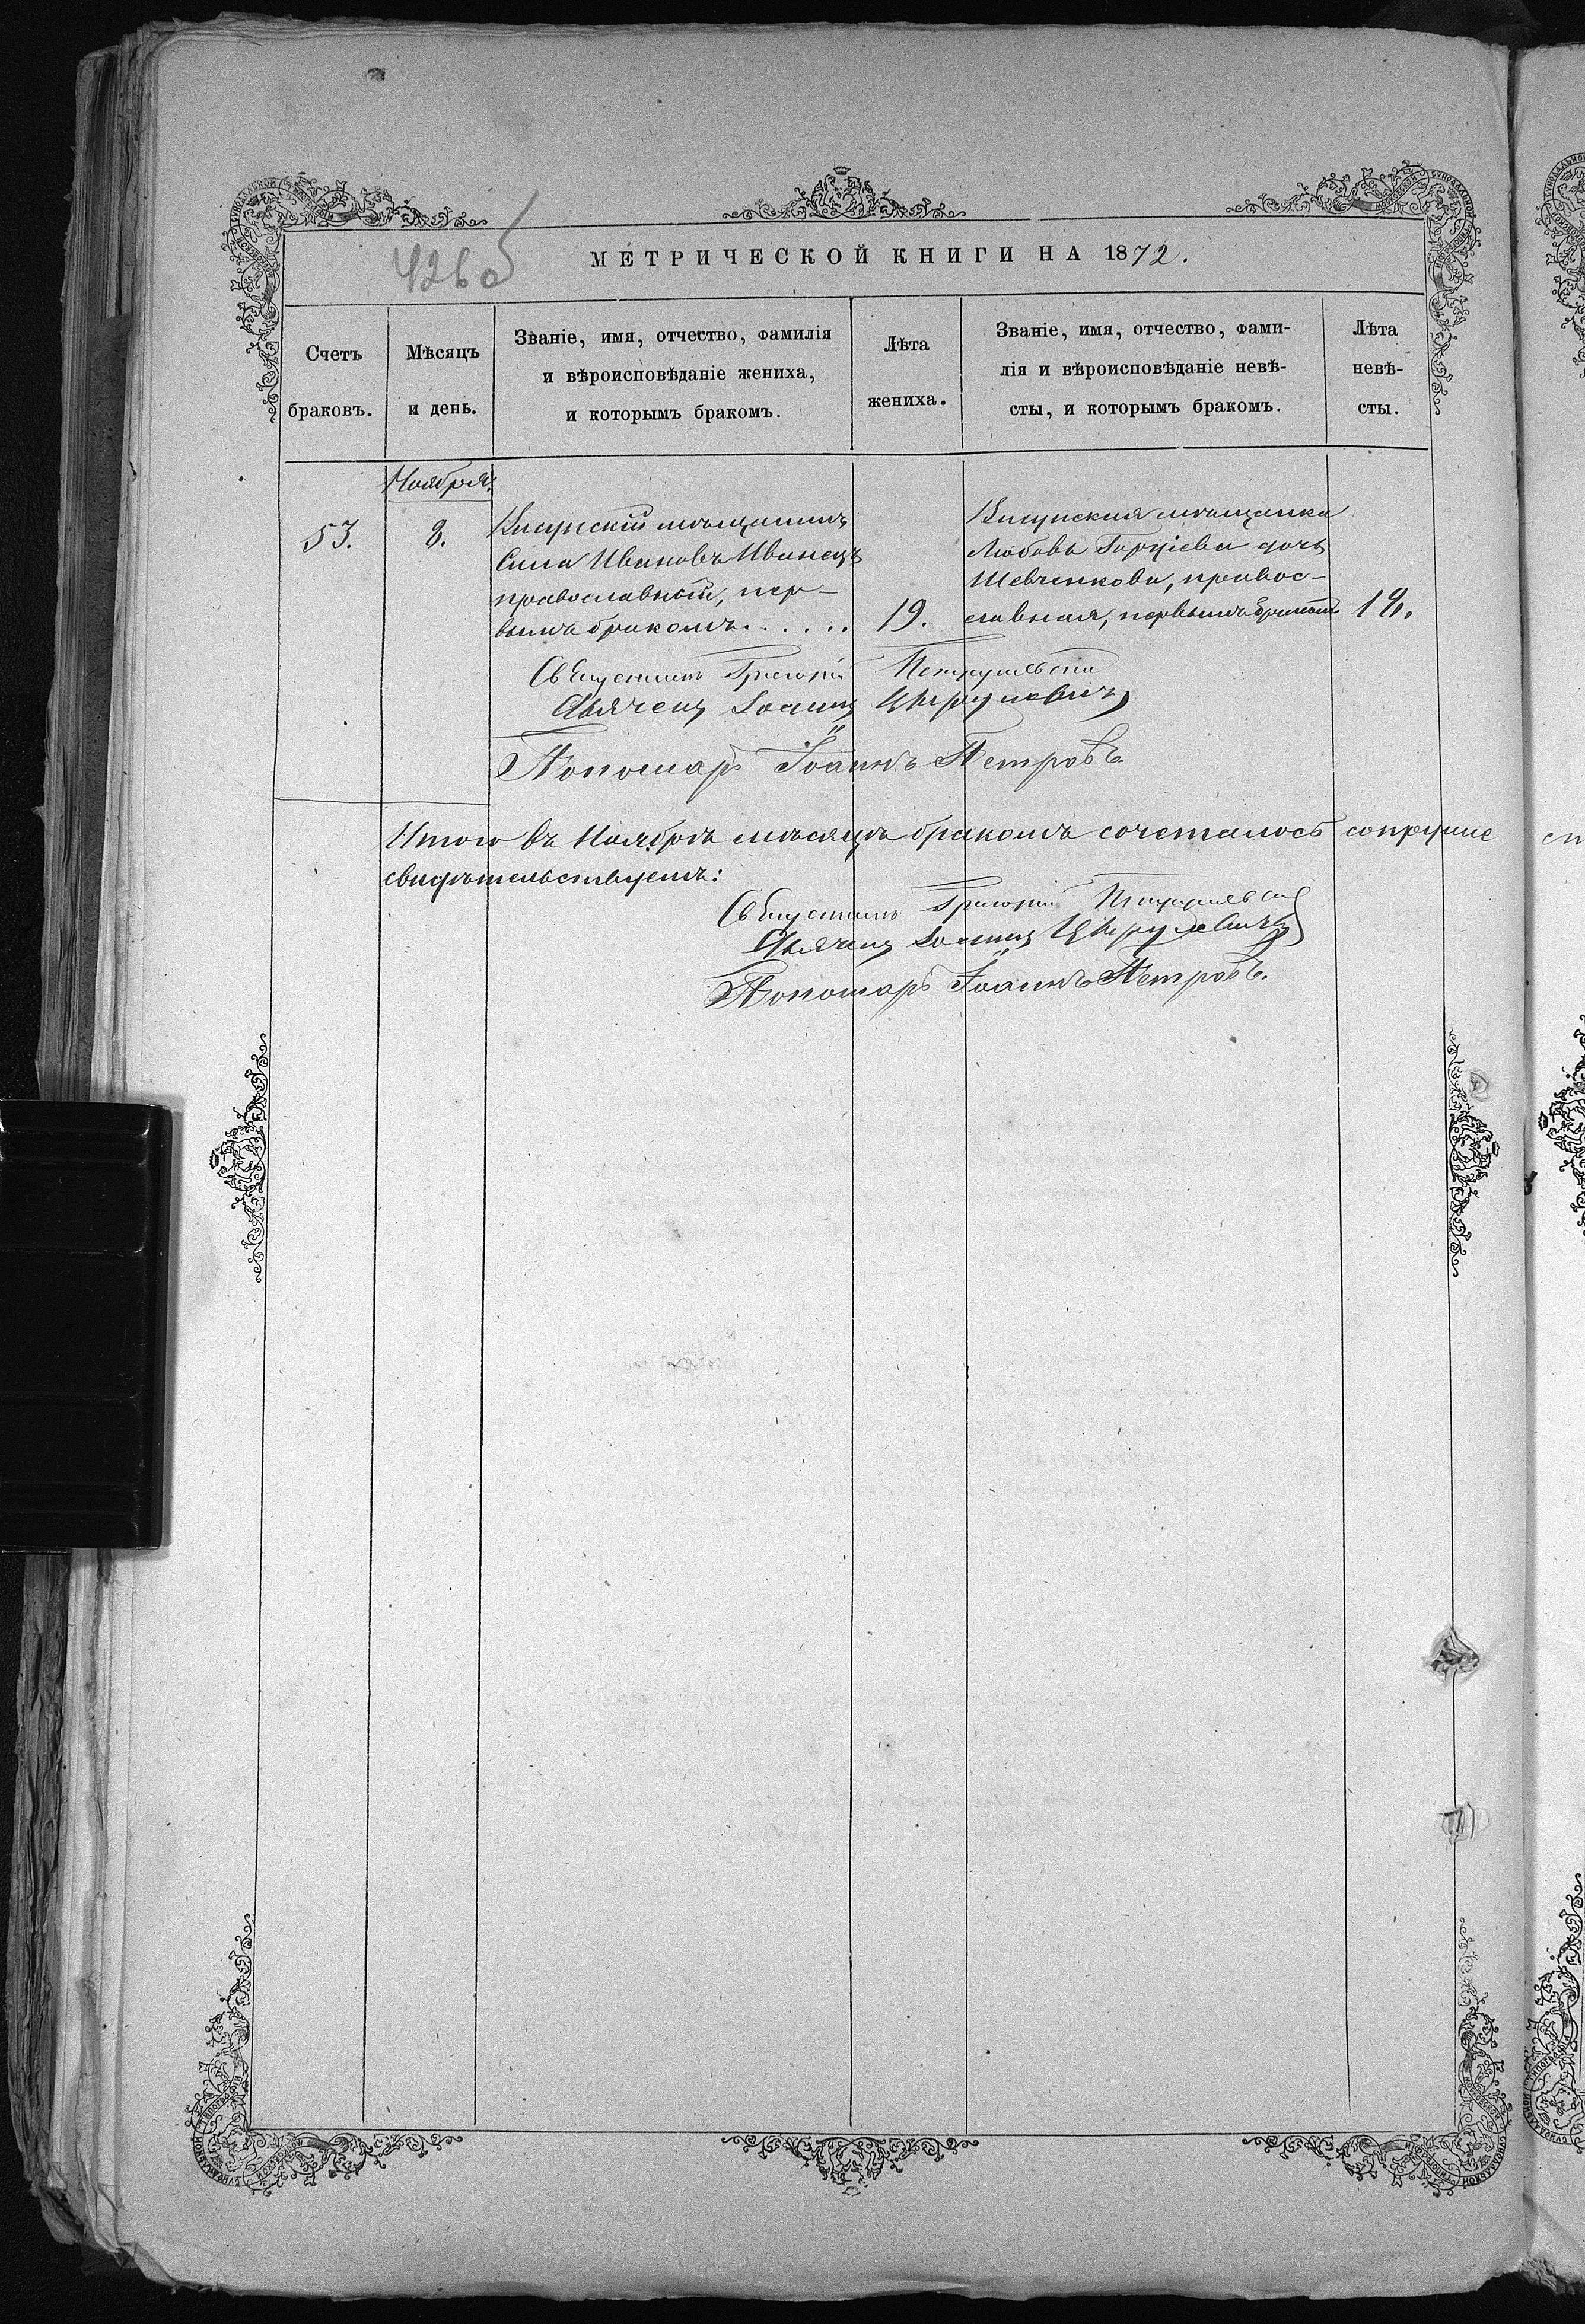 426об
МЕТРИЧЕСКОЙ КНИГИ НА 1872.
Счетъ браковъ.
Мѣсяцъ и день.
Званіе, имя, отчество, фамилія
и вѣроисповѣданіе жениха,
и которымъ бракомъ.
Лѣта
жениха.
Званіе, имя, отчество, фами-
лія и вѣроисповѣданіе невѣ-
сты, и которымъ бракомъ.
Лѣта
невѣ-
сты.
Ноября.
53.
8.
Висунскій мѣщанинъ
Сила Ивановъ Иванецъ
православный, пер-
вымъ бракомъ.....
19.
Висунская мѣщанка
Любовь Гордіева дочь
Шевченкова, правос-
лавная, первымъ бракомъ
19.
Священникъ Григорій
Дьячекъ Іоаннъ
Пономарь Іоаннъ Петровъ
Итого въ Ноябрѣ мѣсяцѣ бракомъ сочеталось
свидѣтельствуемъ:
Священникъ Григорій
Дьячекъ Іоаннъ
Пономарь Іоаннъ Петровъ.